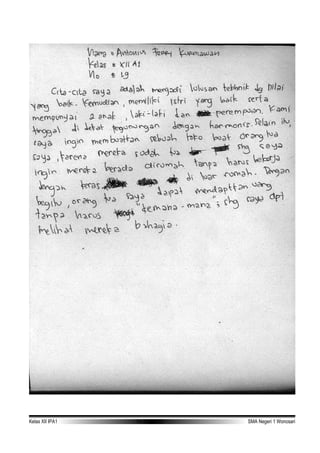 Nama : Antonius Ferry Kurniawan
Kelas : XII A1
No : 19
Cita-cita saya adalah menjadi lulusan tekhnik dg nilai
yang baik. Kemudian, memiliki istri yang baik serta
mempunyai 2 anak, laki-laki dan perempuan. Kami
tinggal di dekat pegunungan dengan harmonis. Selain itu,
saya ingin membuatkan sebuah toko buat orang tua
saya, karena mereka sudah tua shg saya
ingin mereka berada dirumah tanpa harus bekerja
dengan keras di luar rumah. Dengan
begitu, orang tua saya dapat mendapatkan uang
tanpa harus "kemana-mana" shg saya dpt
melihat mereka bahagia.
Kelas XII IPA1
SMA Negeri 1 Wonosari